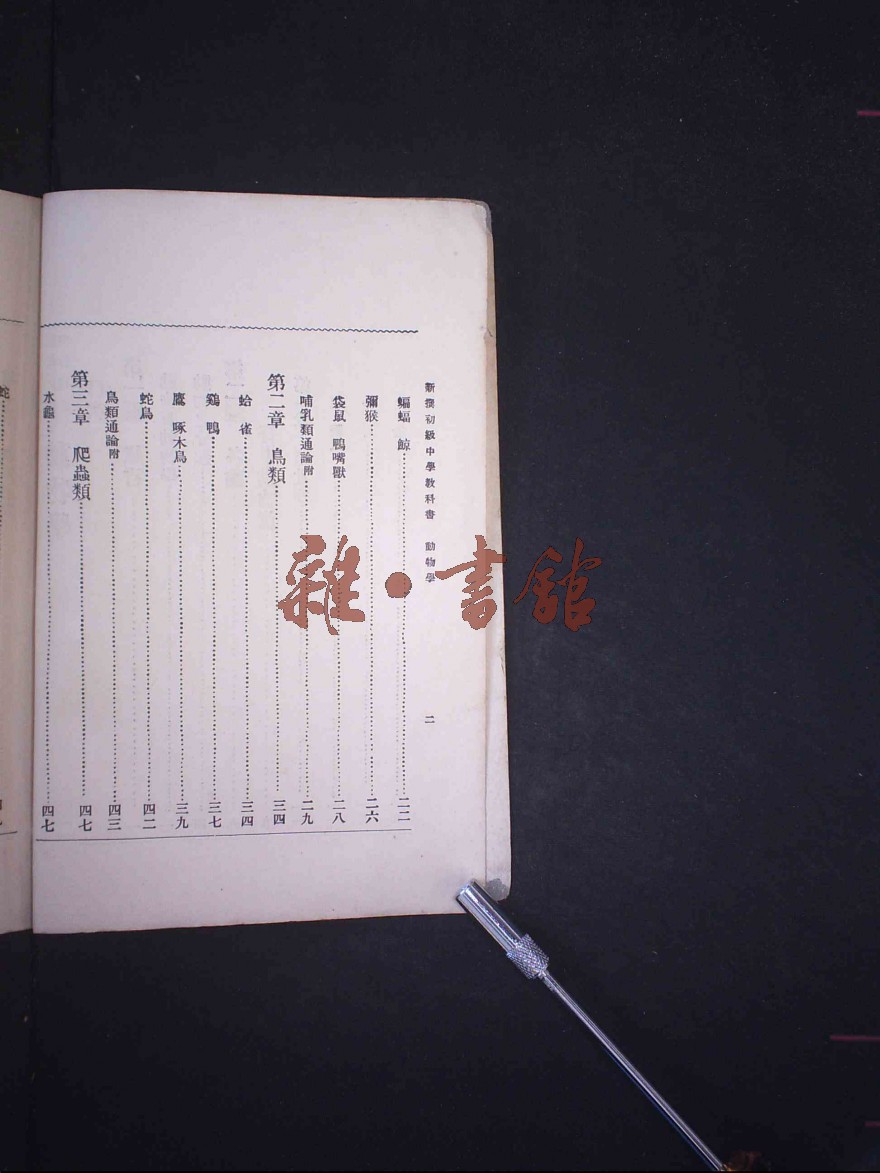 新撰初級中學教科書 動物學 二
蝙蝠 鯨 二二
獼猴 二六
袋鼠 鴨嘴獸 二八
哺乳類通論附 二九
第二章 鳥類 三四
蛤 雀 三四
鷄 鴨 三七
鷹 啄木鳥 三九
蛇鳥 四二
鳥類通論附 四三
第三章 爬蟲類 四七
水龜 四七
蛇
雜·書館